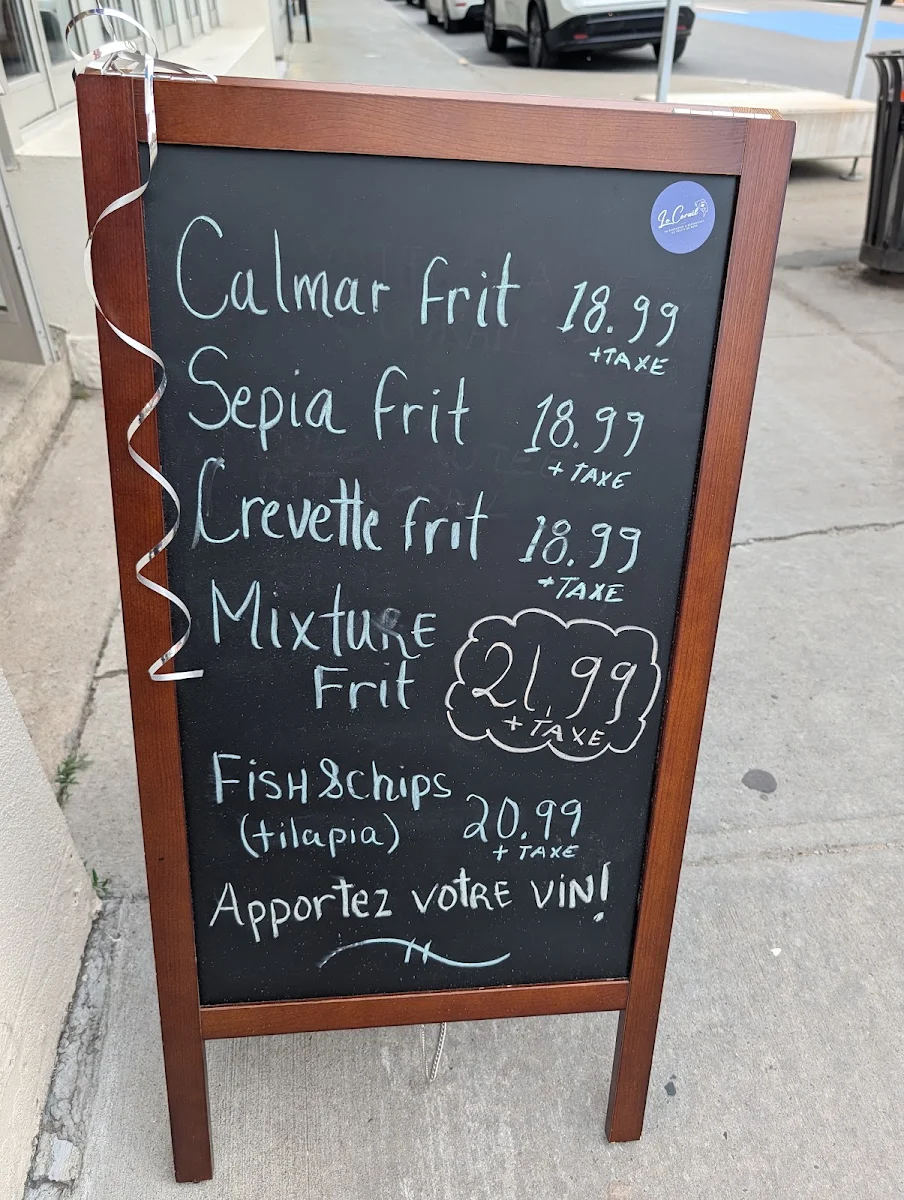 Le Corail
Calmar frit 18.99
+TAXE
Sepia frit 18.99
+ TAXE
Crevette frit 18.99
+TAXE
MixtuRE
Frit
21,99
+ TAXE
FiSH & chips
(tilapia)
20.99
+ TAXE
Apportez votRE ViN!